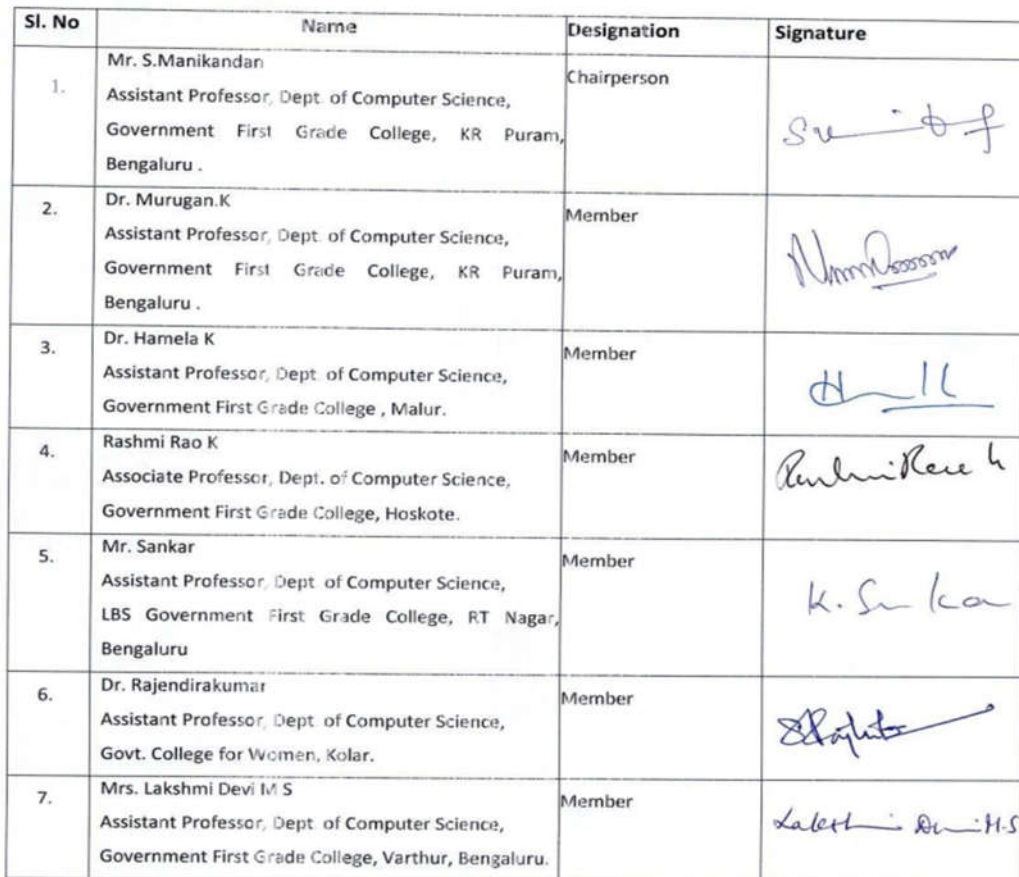 Sl. No Name Designation Signature
1. Mr. S.Manikandan Chairperson
Assistant Professor, Dept. of Computer Science,
Government First Grade College, KR Puram,
Bengaluru .
2. Dr. Murugan.K Member
Assistant Professor, Dept. of Computer Science,
Government First Grade College, KR Puram,
Bengaluru .
3. Dr. Hamela K Member
Assistant Professor, Dept. of Computer Science,
Government First Grade College , Malur.
4. Rashmi Rao K Member
Associate Professor, Dept. of Computer Science,
Government First Grade College, Hoskote.
5. Mr. Sankar Member
Assistant Professor, Dept of Computer Science,
LBS Government First Grade College, RT Nagar,
Bengaluru
6. Dr. Rajendirakumar Member
Assistant Professor, Dept of Computer Science,
Govt. College for Women, Kolar.
7. Mrs. Lakshmi Devi M S Member
Assistant Professor, Dept of Computer Science,
Government First Grade College, Varthur, Bengaluru.